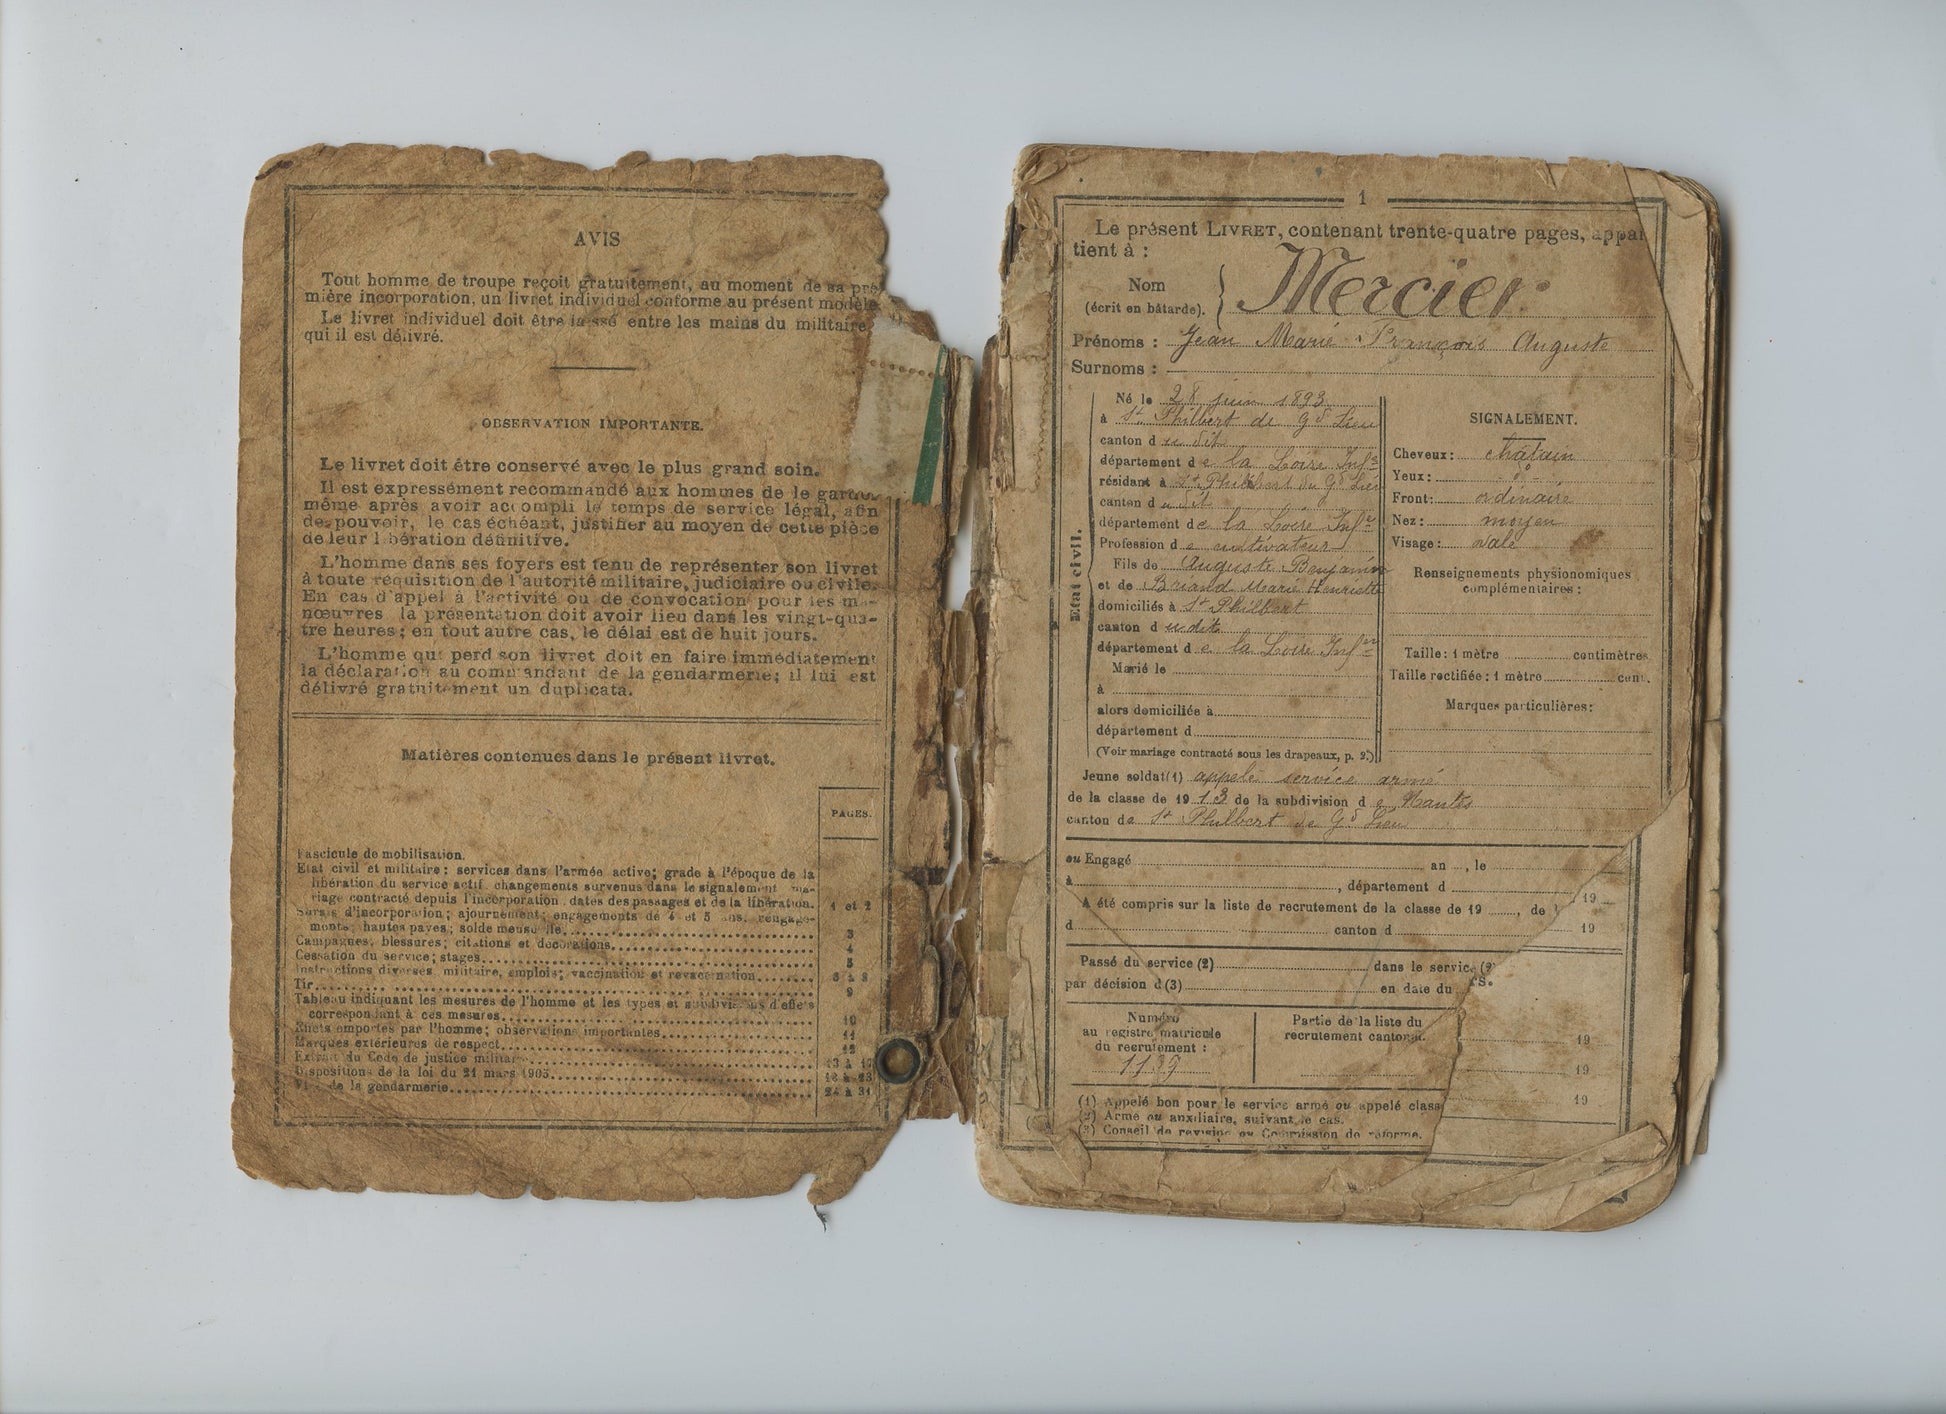 AVIS
Tout homme de troupe reçoit gratuitement, au moment de sa pre
mière incorporation, un livret individuel conforme au présent modèle
Le livret individuel doit être laissé entre les mains du militaire
qui il est délivré.
OBSERVATION IMPORTANTE.
Le livret doit être conservé avec le plus grand soin.
Il est expressément recommandé aux hommes de le garder
même après avoir accompli le temps de service légal, afin
de pouvoir, le cas échéant, justifier au moyen de cette pièce
de leur libération définitive.
L'homme dans ses foyers est tenu de représenter son livret
à toute réquisition de l'autorité militaire, judiciaire ou civile.
En cas d'appel à l'activité ou de convocation pour les ma-
nœuvres la présentation doit avoir lieu dans les vingt-qua-
tre heures; en tout autre cas, le délai est de huit jours.
L'homme qui perd son livret doit en faire immédiatement
la déclaration au commandant de la gendarmerie; il lui est
délivré gratuitement un duplicata.
Matières contenues dans le présent livret.
PAGES.
Fascicule de mobilisation.
Etat civil et militaire: services dans l'armée active; grade à l'époque de la
libération du service actif, changements survenus dans le signalement, ma-
riage contracté depuis l'incorporation, dates des passages et de la libération. 1 et 2
Sursis d'incorporation; ajournement; engagements de 4 et 5 ans, rengage-
ments; hautes payes; solde mensuelle. 3
Campagnes, blessures; citations et décorations. 4
Cessation du service; stages. 5
Instructions diverses, militaire, emplois; vaccination et revaccination. 6 à 8
Tir. 9
Tableau indiquant les mesures de l'homme et les types et subdivisions d'effets
correspondant à ces mesures. 10
Effets emportés par l'homme; observations importantes. 11
Marques extérieures de respect. 12
Extrait du Code de justice militaire. 13 à 17
Dispositions de la loi du 21 mars 1905. 18 à 23
Visa de la gendarmerie. 24 à 31
1
Le présent LIVRET, contenant trente-quatre pages, appar
tient à :
Nom
(écrit en bâtarde). Mercier
Prénoms : Jean Marie François Auguste
Surnoms :
Etat civil.
Né le 28 juin 1893
à St Philbert de Gd Lieu
canton du dit
département de la Loire Infre
résidant à St Philbert du Gd Lieu
canton du dit
département de la Loire Infre
Profession de cultivateur
Fils de Auguste Benjamin
et de Briand Marie Henriette
domiciliés à St Philbert
canton du dit
département de la Loire Infre
Marié le
à
alors domiciliée à
département d
(Voir mariage contracté sous les drapeaux, p. 2.)
SIGNALEMENT.
Cheveux: châtain
Yeux: do
Front: ordinaire
Nez: moyen
Visage: ovale
Renseignements physionomiques
complémentaires :
Taille: 1 mètre centimètres
Taille rectifiée: 1 mètre cent.
Marques particulières:
Jeune soldat(1) appelé service armé
de la classe de 1913 de la subdivision de Nantes
canton de St Philbert de Gd Lieu
ou Engagé an , le
à , département d 19
A été compris sur la liste de recrutement de la classe de 19 , de
d canton d 19
Passé du service (2) dans le service (2
par décision d(3) en date du rs.
Numéro
au registre matricule
du recrutement :
1139
Partie de la liste du
recrutement cantonal.
19
19
19
(1) Appelé bon pour le service armé ou appelé class
(2) Armé ou auxiliaire, suivant le cas.
(3) Conseil de revision ou Commission de réforme.